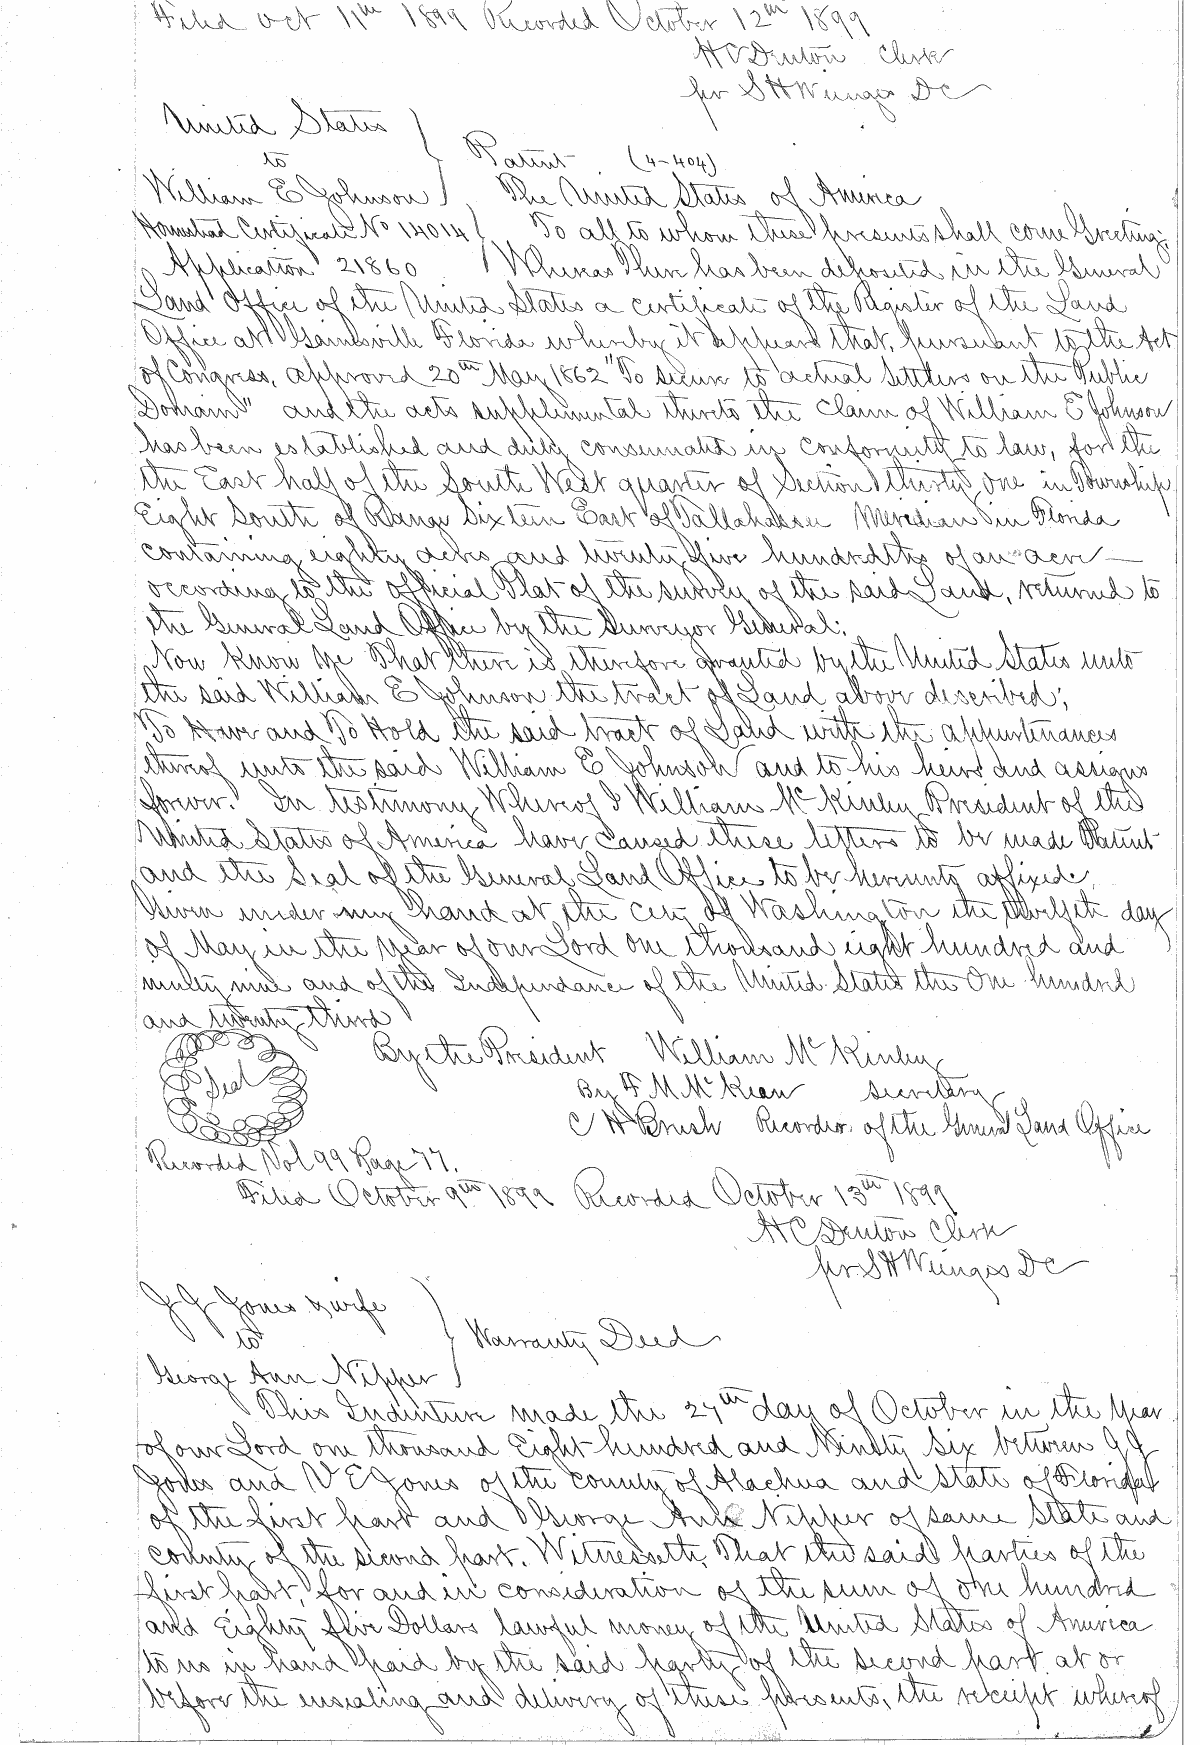 Filed Oct 11th 1899 Recorded October 12th 1899
H C Denton Clerk
per S H Wienges D C
United States
to
Patent (4-404)
William E Johnson The United States of America
Homestead Certificate No 14014 To all to whom these presents shall come Greeting;
Application 21860 Whereas There has been deposited in the General
Land Office of the United States a certificate of the Register of the Land
Office at Gainesville Florida whereby it appears that, pursuant to the Act
of Congress, approved 20th May 1862 "To secure to actual Settlers on the Public
Domain" and the acts supplimental thereto the claim of William E Johnson
has been established and duly consumated in conformity to law, for the
the East half of the South West quarter of Section thirty one in Township
Eight South of Range Sixteen East of Tallahassee Meredian in Florida
containing eighty acres and twenty five hundredths of an acre —
according to the official Plat of the survey of the said Land, returned to
the General Land Office by the Surveyor General:
Now know ye That there is therefore granted by the United States unto
the said William E Johnson the tract of Land above described;
To Have and To Hold the said tract of Land with the appurtenances
thereof unto the said William E Johnson and to his heirs and assigns
forever. In testimony Whereof I William McKinley President of the
United States of America have caused these letters to be made Patent
and the Seal of the General Land Office to be hereunto affixed.
Given under my hand at the city of Washington the twelfth day
of May in the year of our Lord one thousand eight hundred and
ninety nine and of the Independance of the United States the One hundred
and twenty third
By the President William McKinley
Seal
By F M McKean Secretary
C H Brush Recorder of the General Land Office
Recorded Vol 99 Page 77.
Filed October 9th 1899 Recorded October 13th 1899
H C Denton Clerk
per S H Wienges D C
J J Jones & wife
to
Warranty Deed
George Ann Nipper
This Indenture made the 27th day of October in the year
of our Lord one thousand Eight hundred and Ninety Six between J J
Jones and V E Jones of the county of Alachua and State of Florida
of the first part and George Ann Nipper of same State and
county of the second part. Witnesseth, That the said parties of the
first part, for and in consideration of the sum of one hundred
and Eighty five Dollars lawful money of the United States of America
to us in hand paid by the said party of the second part at or
before the ensealing and delivery of these presents, the receipt whereof